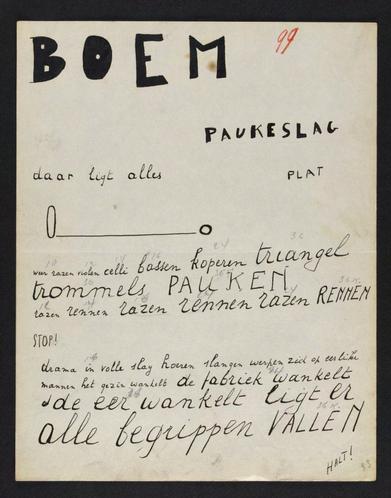 BOEM
99
PAUKESLAG
daar ligt alles
PLAT
O O
weer razen violen celli bassen koperen triangel
trommels PAUKEN
razen rennen razen rennen razen RENNEN
STOP!
drama in volle slag hoeren slangen werpen zich op eerlike
mannen het gezin wankelt de fabriek wankelt
de eer wankelt ligt er
alle begrippen VALLEN
HALT!